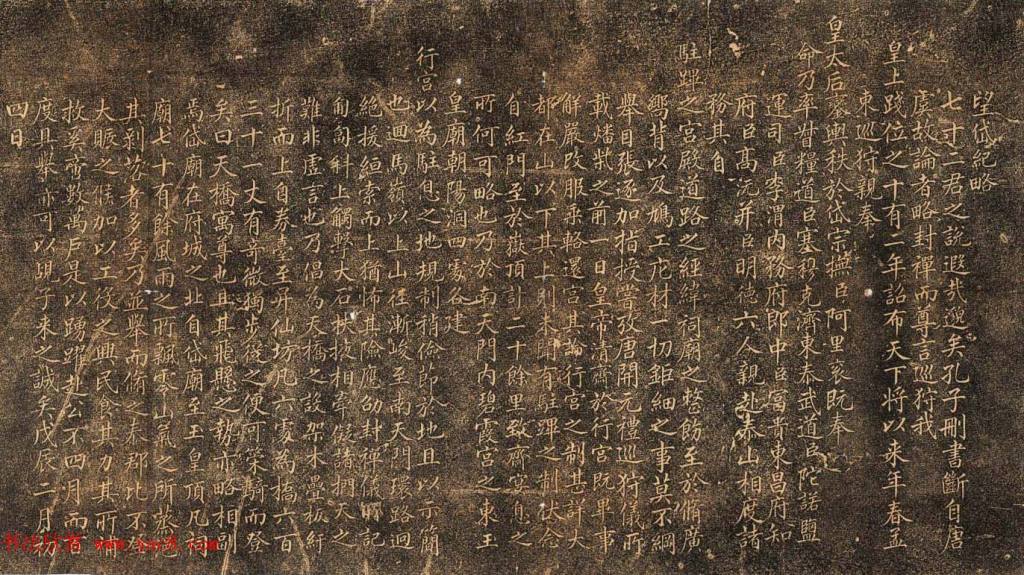 望岱紀略
七十二君之說遐哉邈矣孔子刪書斷自唐
虞故論者略封禪而尊言巡狩我
皇上踐位之十有二年詔布天下將以來年春孟
東巡狩親奉
皇太后鑾輿秩於岱宗撫臣阿里袞既奉
命乃率督糧道臣塞穆克濟東泰武道臣陀諾盟
運司臣李渭內務府郎中臣富貴東昌府知
府臣高沅并臣明德六人親赴泰山相度諸
務其自
駐蹕之宮啟道路之經緯祠廟之整飭至於備廣
以及鳩工庀材一切鉅細之事莫不綱
舉目張逐加指授嘗攷唐開元禮巡狩儀所
載燔柴之前一日皇帝清齋於行宮既畢事
解嚴改服乘輅還宮其論行宮之制甚詳大
都在山以下其上則未聞有駐蹕之制伏念
自紅門至於嶽頂計二十餘里致齋宴息之
所何可略也乃於南天門內碧霞宮之東玉
皇廟朝陽洞四處各建
行宮以為駐息之地規制稍儉節於地且以示簡
也迴馬嶺以上山徑漸峻至南天門環路迴
絕援絙索而上猶怖其險應劭封禪儀所記
匍匐科上觸擊大石扶掖相牽儗諸捫天之
難非虛言也乃倡為天橋之設架木疊板紆
折而上自券臺至昇仙坊凡六處為橋六百
二十一丈有奇微獨步從之便可策騎而登
矣曰天橋寓尊也且其飛懸之勢亦略相副
焉岱廟在府城之北自岱廟至玉皇頂凡
廟七十有餘風雨之所飄零山氣之所蒸
其剝落者多矣乃並舉而脩之泰郡比不
大賑之餘加以工役之興民食其力其所
救奚啻數萬戶是以踴躍赴公不四月而
度具舉亦可以覘子來之誠矣戊辰二月
四日
书法欣赏 www.yac8.com